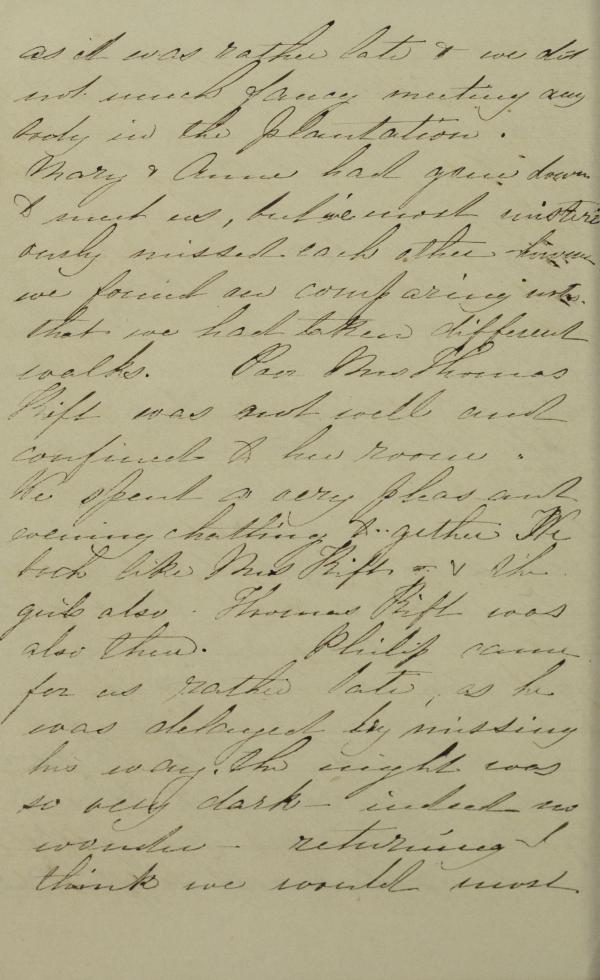 as it was rather late & we did
not much fancy meeting any
body in the plantation.
Mary & Anne had gone down
to meet us, but we most misteri
ously missed each other
we found on comparing notes
that we had taken different
walks. Poor Mrs Thomas
Kift was not well and
confined to her room.
We spent a very pleasant
evening chatting together We
both like Mrs Kift - & the
girls also. Thomas Kift was
also there. Philip came
for us rather late, as he
was delayed by missing
his way. The night was
so very dark - indeed no
wonder - returning I
think we would most